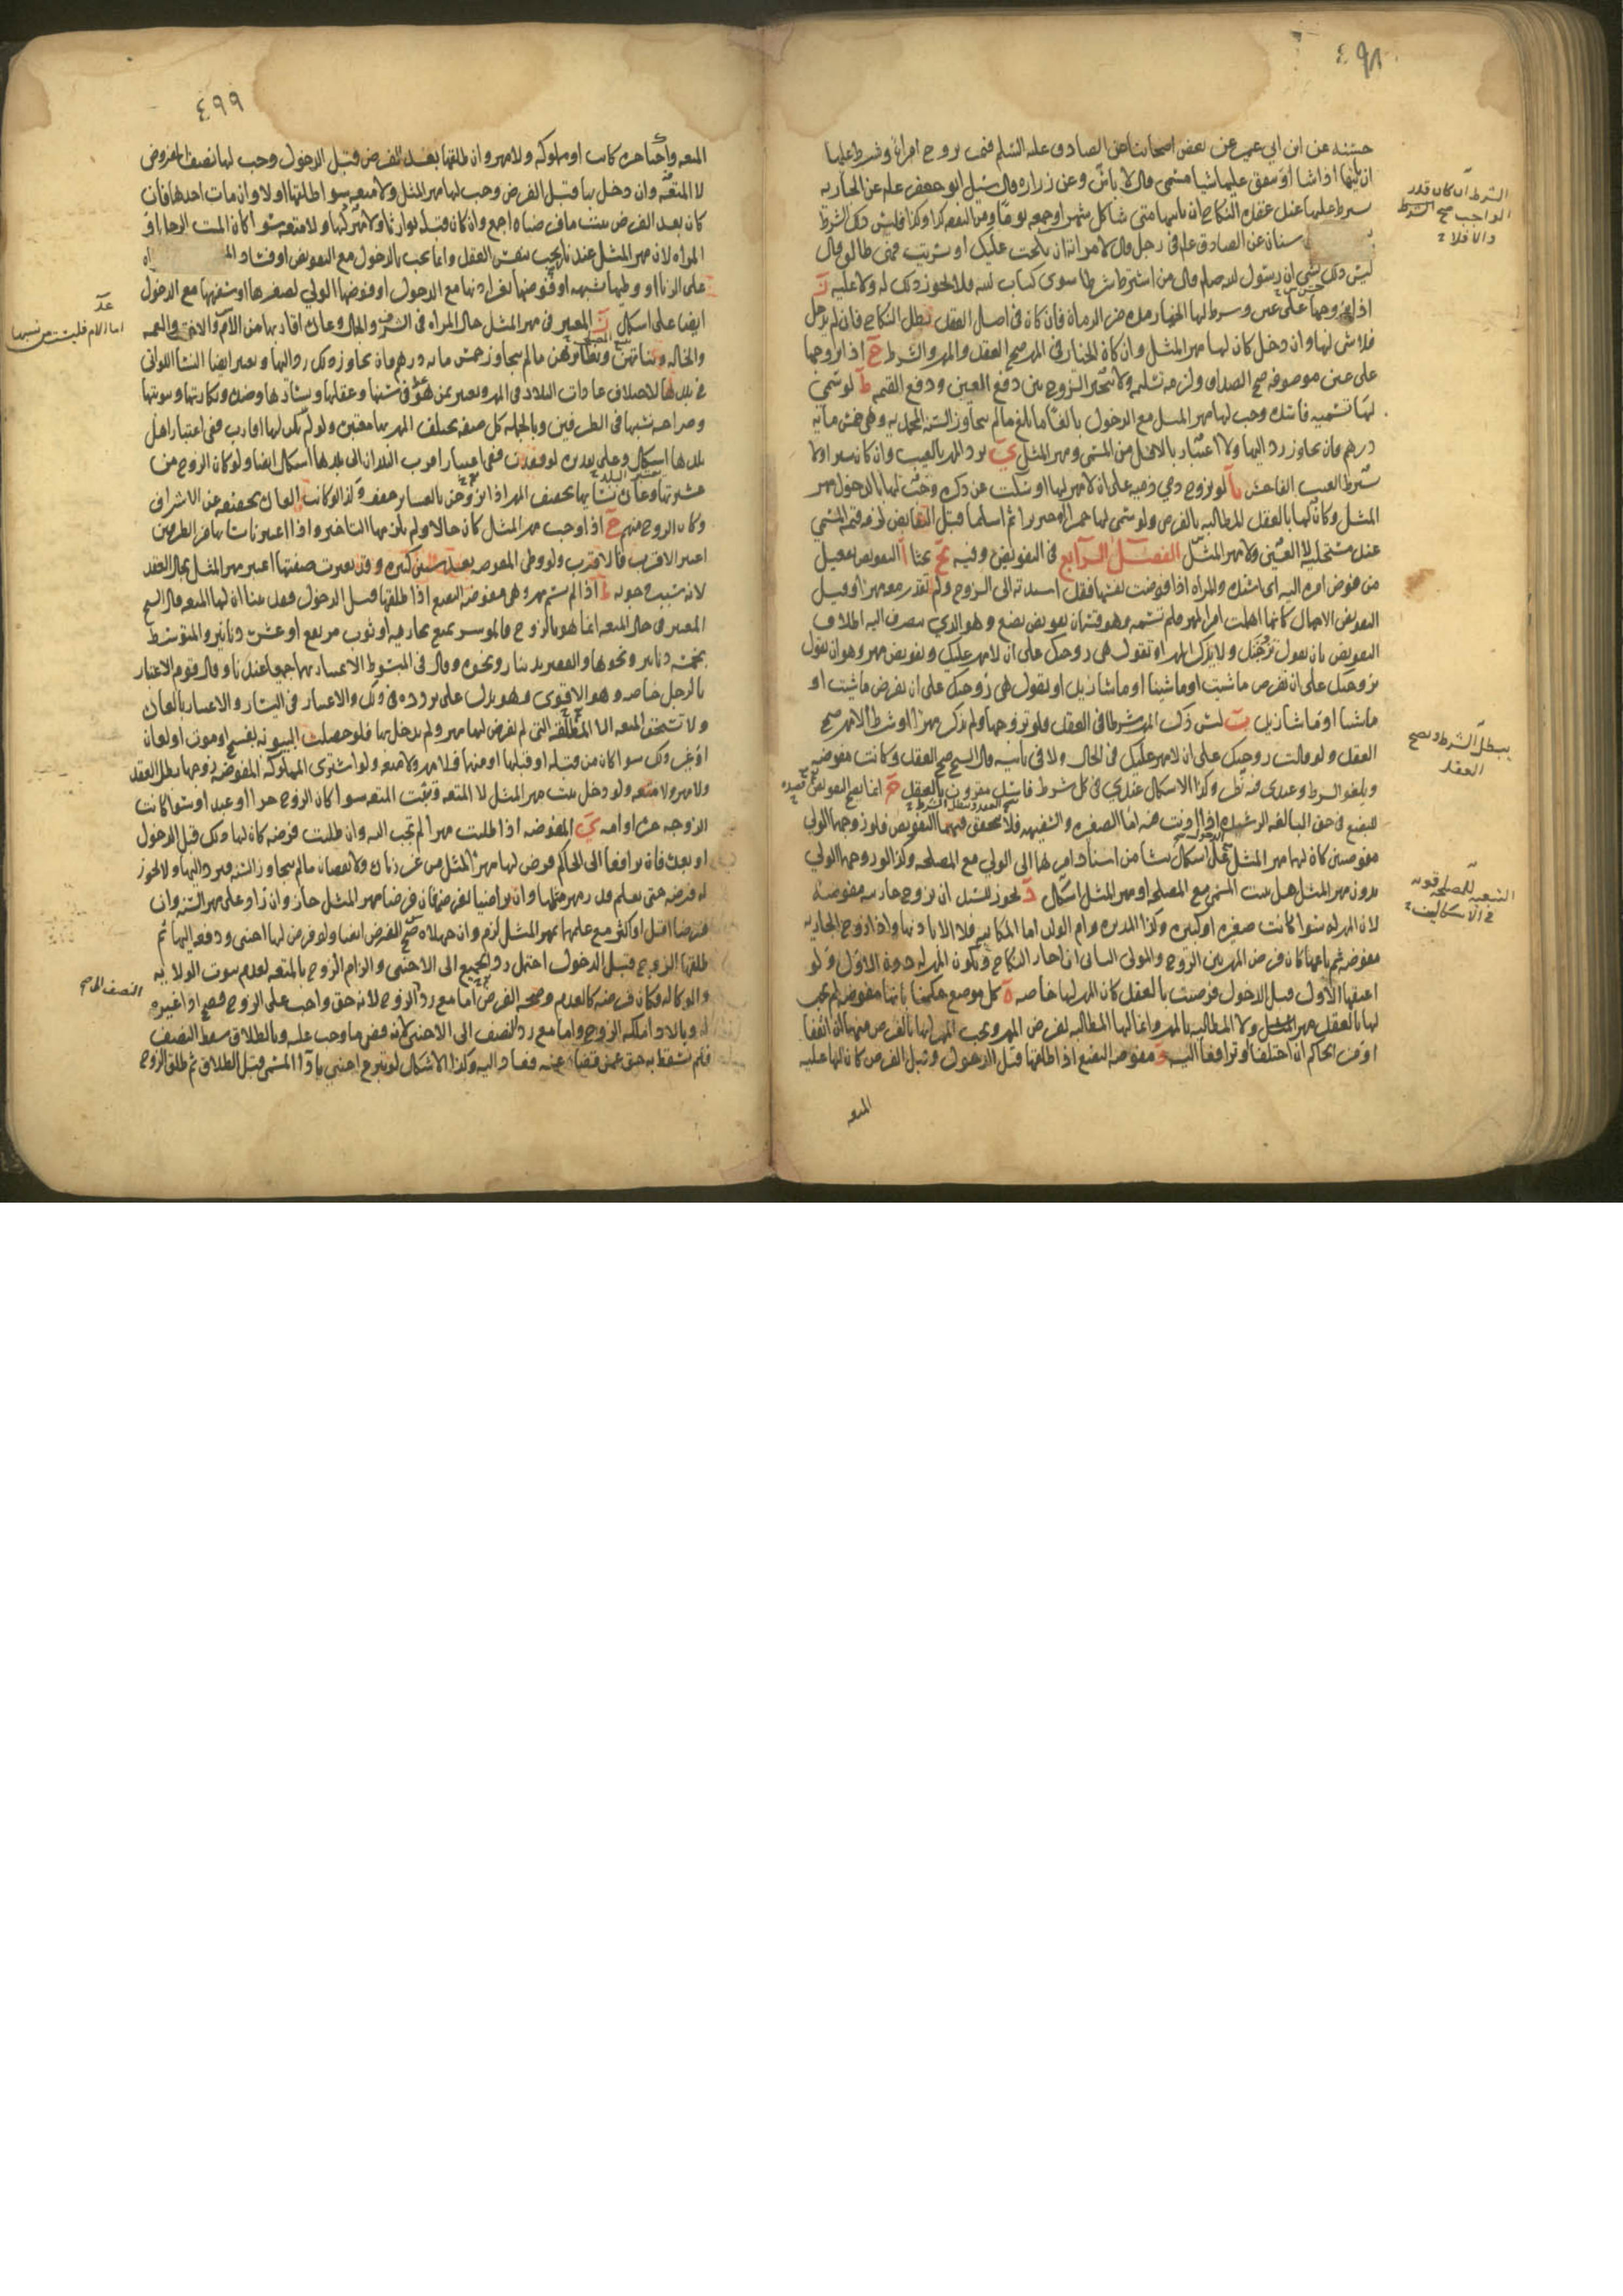 ٤٩٨
حسنه عن ابن ابي عمير عن بعض اصحابنا عن الصادق عليه السلم فيمن يزوج امراة وشرط عليها
ان ياتيها اذا شا او ينفق عليها شيا مسمى قال لا باس وعن زراره قال سئل ابو جعفر علم عن الجاريه
يشرط عليها عند عقده النكاح ان ياتيها متى شا كل شهر او جمعه يوما ومن النفقه كذا وكذا فليس ذلك الشرط
سنان عن الصادق علم في رجل قال لامراته ان نكحت عليك او تسريت فهي طالق قال
ليس ذلك بشي ان رسول الله صلم قال من اشترط شرطا سوى كتاب الله فلا يجوز ذلك له ولا عليه
اذا تزوجها على عين وشرط لها الخيار مده من الزمان فان كان في اصل العقد بطل النكاح فان لم يدخل
فلا شي لها وان دخل كان لها مهر المثل وان كان الخيار في المهر صح العقد والمهر والشرط ح اذا تزوجها
على عين موصوفه صح الصداق ولزمه تسليمه ولا يتخير الزوج بين دفع العين ودفع القيمه ط لو سمي
لها تسميه فاسده وجب لها مهر المثل مع الدخول بالغا ما بلغ ما لم يتجاوز السنه المحمديه وهي خمس مايه
درهم فان تجاوز رد اليها ولا اعتبار بالاقل من المسمى ومهر المثل ي يرد المهر بالعيب وان كان يسيرا ولا
يشترط العيب الفاحش يا لو يزوج ذمي ذميه على ان لا مهر لها او سكت عن ذكره وجب لها بالدخول مهر
المثل وكان لها بالعقد المطالبه بالفرض ولو سمى لها خمرا او خنزيرا ثم اسلما قبل التقابض لزمه قيمه المسمى
عند مستحليه لا العين ولا مهر المثل الفصل الرابع في التفويض وفيه بحثا ا التفويض تفعيل
من فوض امره اليه اي اسنده والمراه اذا فوضت بضعها فقد اسندته الى الزوج ولم تقدر معه مهرا وقيل
التفويض الاهمال كانما اهملت امر المهر فلم تسمه وهو قسمان تفويض بضع وهو الذي ينصرف اليه اطلاق
التفويض بان يقول زوجتك ولا يذكر المهر او تقول هي زوجتك على ان لا مهر عليك وتفويض مهر وهو ان يقول
زوجتك على ان تفرض ما شيت او ما شينا او ما شا زيد او يقول هي زوجتك على ان يفرض ما شيت او
ما شينا او ما شا زيد ب ليس ذكر المهر شرطا في العقد فلو تزوجها ولم يذكر مهرا او شرط الا مهر صح
العقد ولو قالت زوجتك على ان لا مهر عليك في الحال ولا في ثانيه قال الشيخ صح العقد وكانت مفوضه
ويلغو الشرط وعندي فيه نظر وكذا الاشكال عندي في كل شرط فاسد مقرون بالعقد ج انما يصح التفويض
للبضع في حق البالغه الرشيده اذا اذنت فيه اما الصغيره والسفيهه فلا يتحقق فيهما التفويض فلو زوجها الولي
مفوضتين كان لها مهر المثل على اشكال ينشا من اسناد امرها الى الولي مع المصلحه وكذا لو زوجها الولي
بدون مهر المثل هل يثبت المسمى مع المصلحه او مهر المثل اشكال د يجوز للسيد ان يزوج جاريته مفوضه
لان المهر له سوا كانت صغيره او كبيره وكذا المدبره وام الولد اما المكاتبه فلا الا باذنها واذا زوج الجاريه
مفوضه ثم باعها كان فرض المهر بين الزوج والمولى الثاني ان اجاز النكاح ويكون المهر له دون الاول ولو
اعتقها الاول قبل الدخول فرضت بالعقد كان المهر لها خاصه ه كل موضع حكمنا بانها مفوضه لم يجب
لها بالعقد مهر المثل ولا المطالبه بالمهر وانما لها المطالبه بفرض المهر ويجب المهر لها بالفرض منهما ان اتفقا
او من الحاكم ان اختلفا وترافعا اليه و مفوضه البضع اذا طلقها قبل الدخول وقبل الفرض كان لها عليه
المتعه
الشرط ان كان قدر
الواجب صح الشرط
والا فلا
يبطل الشرط ويصح
العقد
٤٩٩
المتعه واجبا حره كانت او مملوكه ولا مهر وان طلقها بعد الفرض وقبل الدخول وجب لها نصف المفروض
لا المتعه وان دخل بها قبل الفرض وجب لها مهر المثل ولا متعه سوا طلقها او لا وان مات احدهما فان
كان بعد الفرض ثبت ما فرضاه اجمع وان كان قبله توارثا ولا مهر لها ولا متعه سوا كان الميت الرجل او
المراه لان مهر المثل عندنا لا يجب بنفس العقد وانما يجب بالدخول مع التفويض او فساد
على الزنا او وطيها بشبهه او فوضها بغير اذنها مع الدخول او فوضها الولي لصغرها او سفهها مع الدخول
ايضا على اشكال ز المعتبر في مهر المثل حال المراه في الشرف والجمال وعادة اقاربها من الام والاخت والعمه
والخاله وبناتهن ونظائرهن ما لم يتجاوز خمس مايه درهم فان تجاوز ذلك رد اليها ويعتبر ايضا النسا اللواتي
في بلدها لاختلاف عادات البلاد في المهر ويعتبر بمن هو في سنها وعقلها ويسارها وضد وبكارتها وثيوبتها
وصراحه نسبها في الطرفين وبالجمله كل صفه يختلف المهر بها معتبره ولو لم يكن لها اقارب ففي اعتبار اهل
بلدها اشكال وعلى تقديره لو فقدن ففي اعتبار اقرب البلدان الى بلدها اشكال ايضا ولو كان الزوج من
عشيرتها وعادة نسايها تخفيف المهر اذا تزوجن بالعشاير خفف وكذا لو كانت العادة تخفيفه عن الاشراف
وكان الزوج منهم ح اذا وجب مهر المثل كان حالا ولم يلزمها التاخير واذا اعتبرنا نساها من الطرفين
اعتبر الاقرب فالاقرب ولو وطي المفوضه بعد سنين كثيره وقد تغيرت صفتها اعتبر مهر المثل بحال العقد
لانه سبب وجوبه ط اذا لم يسم مهر وهي مفوضه البضع اذا طلقها قبل الدخول فقد بينا ان لها المتعه قال الشيخ
المعتبر في حال المتعه انما هو بالزوج فالموسر يمتع بجاريه او ثوب مرتفع او عشره دنانير والمتوسط
بخمسه دنانير ونحوها والفقير بدينار ونحوه وقال في المبسوط الاعتبار بهما جميعا عندنا وقال قوم الاعتبار
بالرجل خاصه وهو الاقوى وهو يدل على تردده في ذلك والاعتبار في اليسار والاعسار بالعادة
ولا تستحق المتعه الا المطلقه التي لم يفرض لها مهر ولم يدخل بها فلو حصلت البينونه بفسخ او موت او لعان
او غير ذلك سوا كان من قبله او قبلها او منهما فلا مهر ولا متعه ولو اشترى المملوكه المفوضه زوجها بطل العقد
ولا مهر ولا متعه ولو دخل ثبت مهر المثل لا المتعه وتثبت المتعه سوا كان الزوج حرا او عبدا وسوا كانت
الزوجه حره او امه ي المفوضه اذا طلبت مهرا لم تجب اليه وان طلبت فرضه كان لها ذلك قبل الدخول
او بعده فان ترافعا الى الحاكم فرض لها مهر المثل من غير زيادة ولا نقصان ما لم يتجاوز السنه فيرد اليها ولا يجوز
له فرضه حتى يعلم قدر مهر مثلها وان تراضيا لفرضها فان فرضا مهر المثل جاز وان زاد على مهر السنه وان
فرضا اقل او اكثر مع علمهما بمهر المثل لزم وان جهلاه صح الفرض ايضا ولو فرض لها اجنبي ودفعه اليها ثم
طلقها الزوج قبل الدخول احتمل رد الجميع الى الاجنبي والزام الزوج بالمتعه لعدم ثبوت الولايه
والوكاله فكان فرضه كالعدم وصحه الفرض اما مع رد الزوج لانه حق واجب على الزوج فصح اداء غيره
له وبالاداء ملكه الزوج واما مع رد النصف الى الاجنبي لانه قضى ما وجب عليه وبالطلاق سقط النصف
فلم يسقط به حق عمن قضاه عنه فعاد اليه وكذا الاشكال لو تبرع اجنبي باداء المسمى قبل الطلاق ثم طلق الزوج